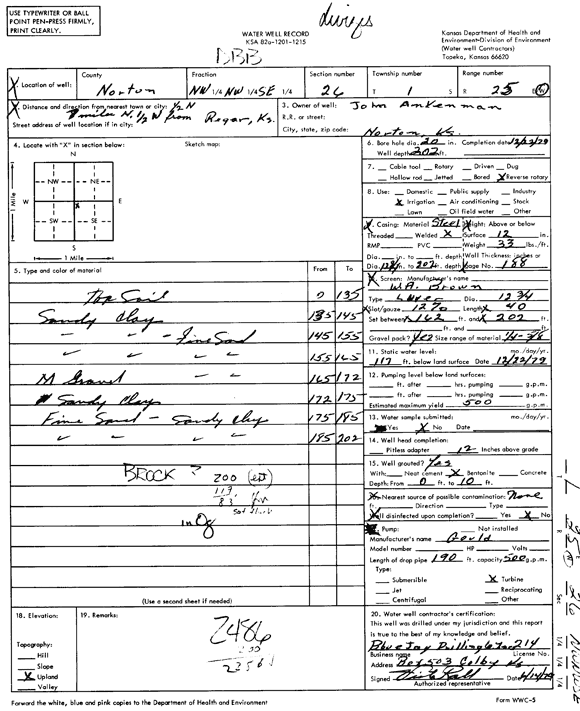 USE TYPEWRITER OR BALL
POINT PEN-PRESS FIRMLY,
PRINT CLEARLY.
WATER WELL RECORD
KSA 82a-1201-1215
Kansas Department of Health and
Environment-Division of Environment
(Water well Contractors)
Topeka, Kansas 66620
DBB
1. Location of well: County Norton Fraction NW 1/4 NW 1/4 SE 1/4 Section number 26 Township number T 1 S Range number R 25 E/W
2. Distance and direction from nearest town or city: 1/2 N
miles N, 1/2 W from
Street address of well location if in city:
3. Owner of well: John Ankenman
R.R. or street:
City, state, zip code: Norton, Ks.
4. Locate with "X" in section below: Sketch map:
N
NW NE
W E
SW SE
S
1 Mile
1 Mile
6. Bore hole dia. 30 in. Completion date 12/22/79
Well depth 202 ft.
7. Cable tool Rotary Driven Dug
Hollow rod Jetted Bored X Reverse rotary
8. Use: Domestic Public supply Industry
X Irrigation Air conditioning Stock
Lawn Oil field water Other
9. Casing: Material Steel Height: Above or below
Threaded Welded X Surface 12 in.
RMP PVC Weight 33 lbs./ft.
Dia. in. to ft. depth Wall Thickness: inches or
Dia. 12 3/4 in. to 202 ft. depth gage No. 188
10. Screen: Manufacturer's name
W.A. Brown
Type Dia. 12 3/4
Slot/gauze Length 40
Set between 162 ft. and 202 ft.
ft. and ft.
Gravel pack? yes Size range of material 1/4-3/8
5. Type and color of material From To
Top Soil 0 135
Sandy Clay 135 145
" - Fine Sand 145 155
" " " 155 165
M Gravel 165 172
Sandy Clay 172 175
Fine Sand - Sandy Clay 175 185
" " " 185 202
BROCK ? 200 (est)
117
83
in Og
(Use a second sheet if needed)
11. Static water level: mo./day/yr.
117 ft. below land surface Date 12/22/79
12. Pumping level below land surfaces:
ft. after hrs. pumping g.p.m.
ft. after hrs. pumping g.p.m.
Estimated maximum yield 500 g.p.m.
13. Water sample submitted: mo./day/yr.
Yes X No Date
14. Well head completion:
Pitless adapter 12 Inches above grade
15. Well grouted? Yes
With: Neat cement X Bentonite Concrete
Depth: From 0 ft. to 10 ft.
16. Nearest source of possible contamination: None
ft. Direction Type
Well disinfected upon completion? Yes X No
17. Pump: Not installed
Manufacturer's name Gould
Model number HP Volts
Length of drop pipe 190 ft. capacity 500 g.p.m.
Type:
Submersible X Turbine
Jet Reciprocating
Centrifugal Other
18. Elevation:
Topography:
Hill
Slope
X Upland
Valley
19. Remarks:
2486
20. Water well contractor's certification:
This well was drilled under my jurisdiction and this report
is true to the best of my knowledge and belief.
Blue Jay Drilling 214
Business name License No.
Address Box 503 Colby Ks
Signed Date
Authorized representative
Forward the white, blue and pink copies to the Department of Health and Environment
Form WWC-5